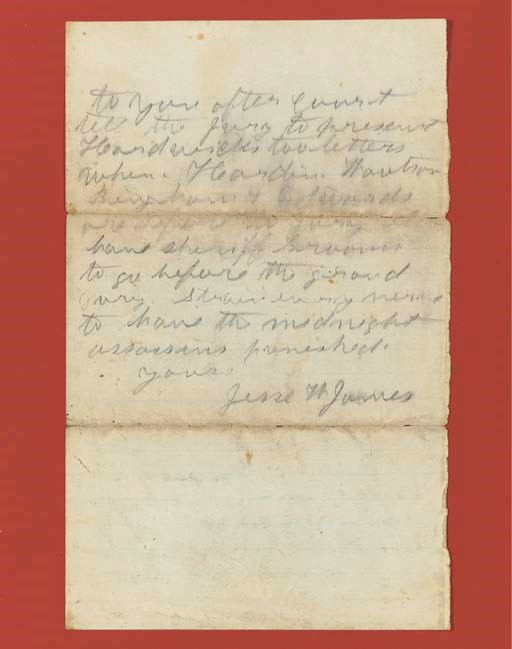 to you after Court
tell the jury to present
Hardwicks too letters
when Hardin
Bingham & Edwards
are before the jury
have sheriff Grooms
to go before the grand
jury. Strain every nerve
to have the midnight
assassins punished.
yours
Jesse W James